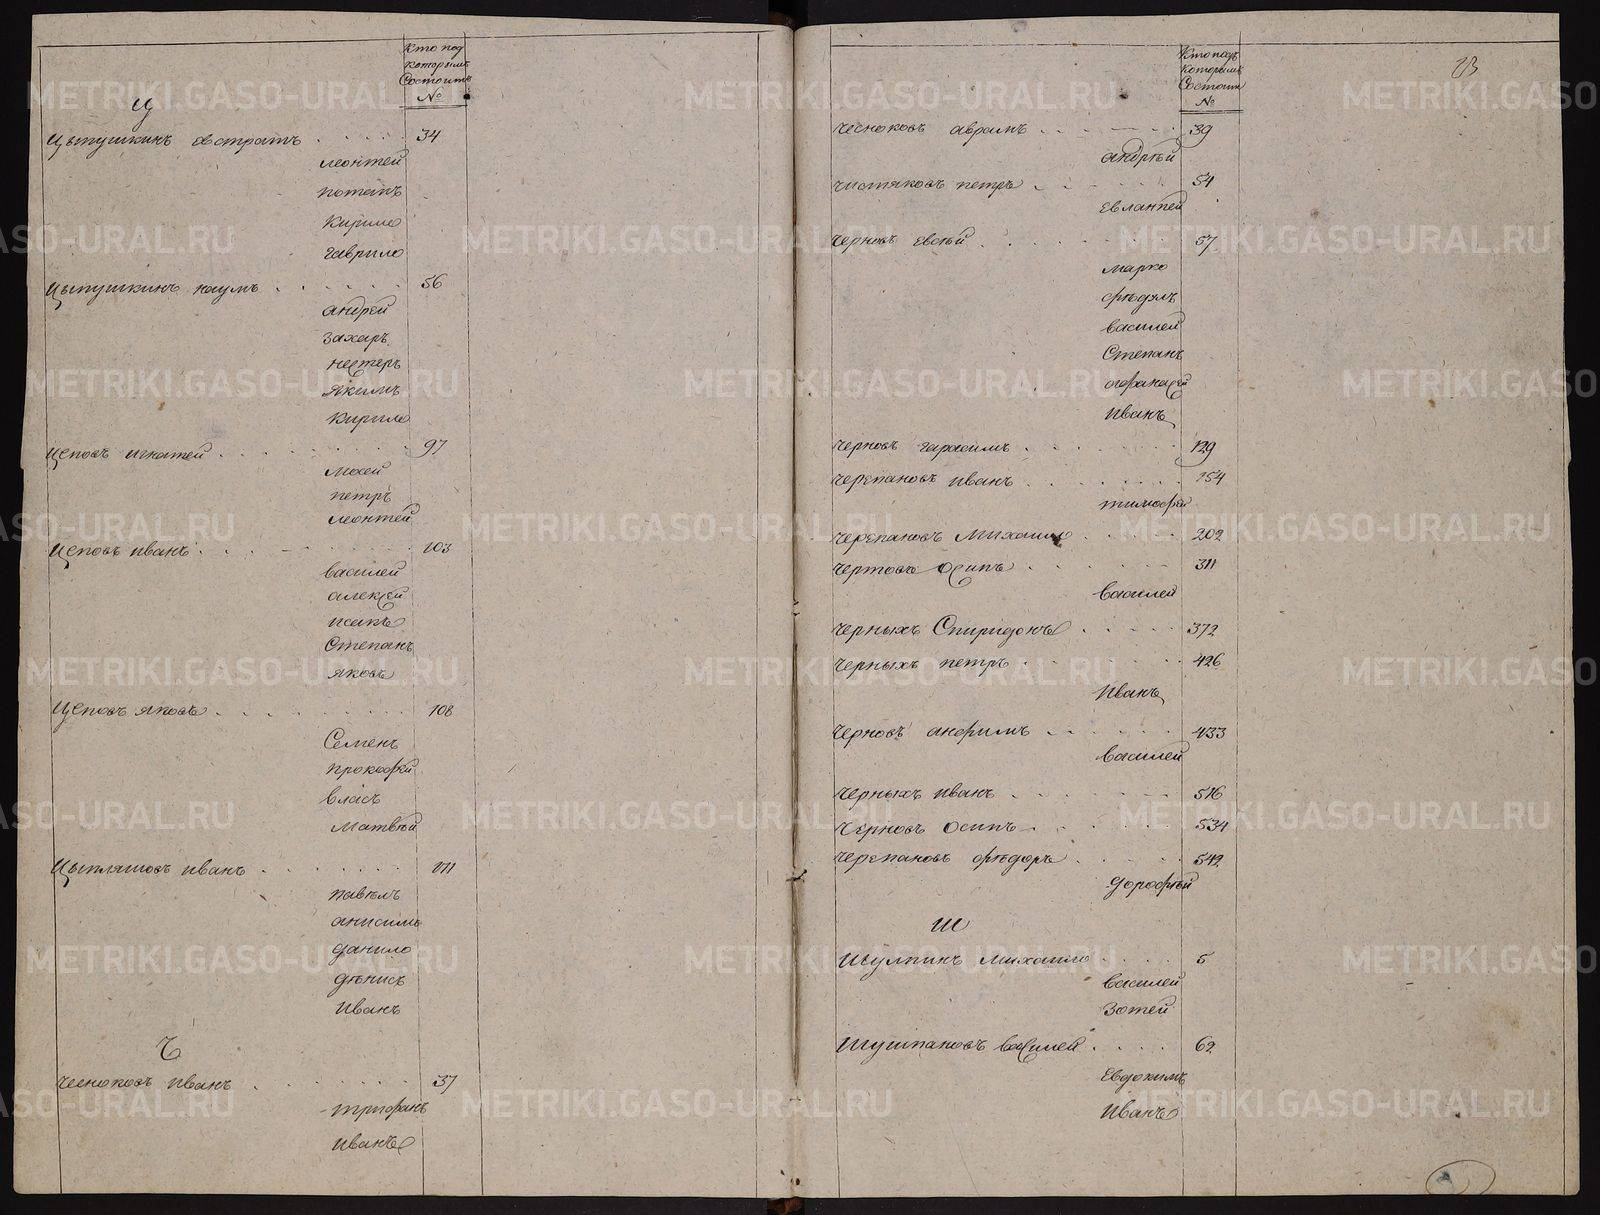 Кто под
которымъ
Состоитъ
№
Ц
Цыпушкинъ евстратъ 34
леонтей
потапъ
Кирило
гаврило
Цыпушкинъ наумъ 56
андрей
захаръ
нестеръ
якимъ
Кирило
Цеповъ игнатей 97
мосей
петръ
леонтей
Цеповъ иванъ 103
василей
алексей
исакъ
Степанъ
яковъ
Цеповъ яковъ 108
Семенъ
прокофей
власъ
матвѣй
Цыпляшовъ иванъ 111
павелъ
анисимъ
данило
дѣнисъ
Иванъ
Ч
чесноковъ иванъ 37
трифанъ
иванъ
23
Кто подъ
которымъ
Состоитъ
№
чесноковъ аврамъ 39
андрѣй
чистяковъ петръ 54
евлантей
черновъ евсѣй 57
марко
фѣдулъ
василей
Степанъ
афанасей
Иванъ
черновъ гарасимъ 129
черепановъ иванъ 154
тимофей
черепановъ Михаило 202
чертовъ Осипъ 311
василей
черныхъ Спиридонъ 372
черныхъ петръ 426
Иванъ
черновъ анфимъ 433
василей
черныхъ иванъ 516
черновъ Осипъ 534
черепановъ фѣдоръ 542
дорофѣй
Ш
Шулпинъ михаило 5
василей
Зотей
Шушпановъ василей 62
Евдокимъ
Иванъ
METRIKI.GASO-URAL.RU